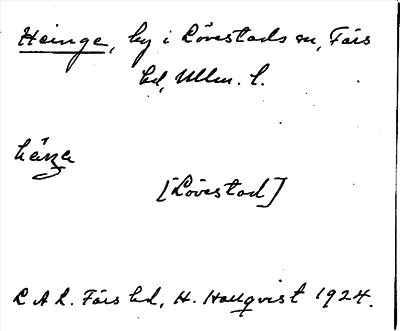 Heinge, by i Lövestads sn, Färs
hd, Mlm. l.
häŋa
[Lövestad]
L A L. Färs hd, H. Hallqvist 1924.